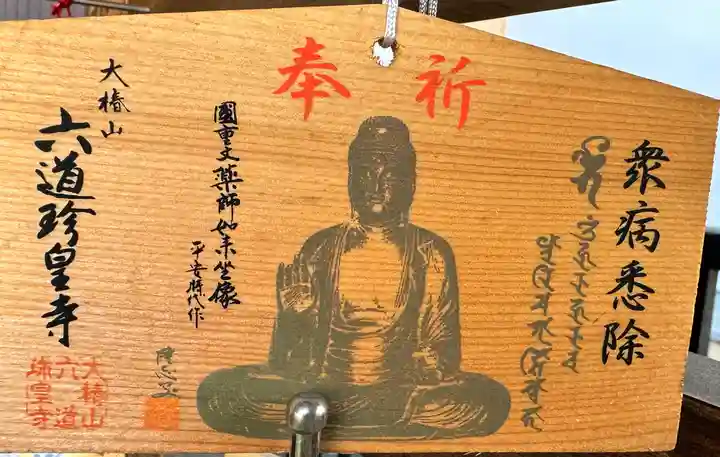 奉祈
衆病悉除
國重文薬師如来坐像
平安時代作
大椿山
六道珍皇寺
大椿山
六道
珍皇寺